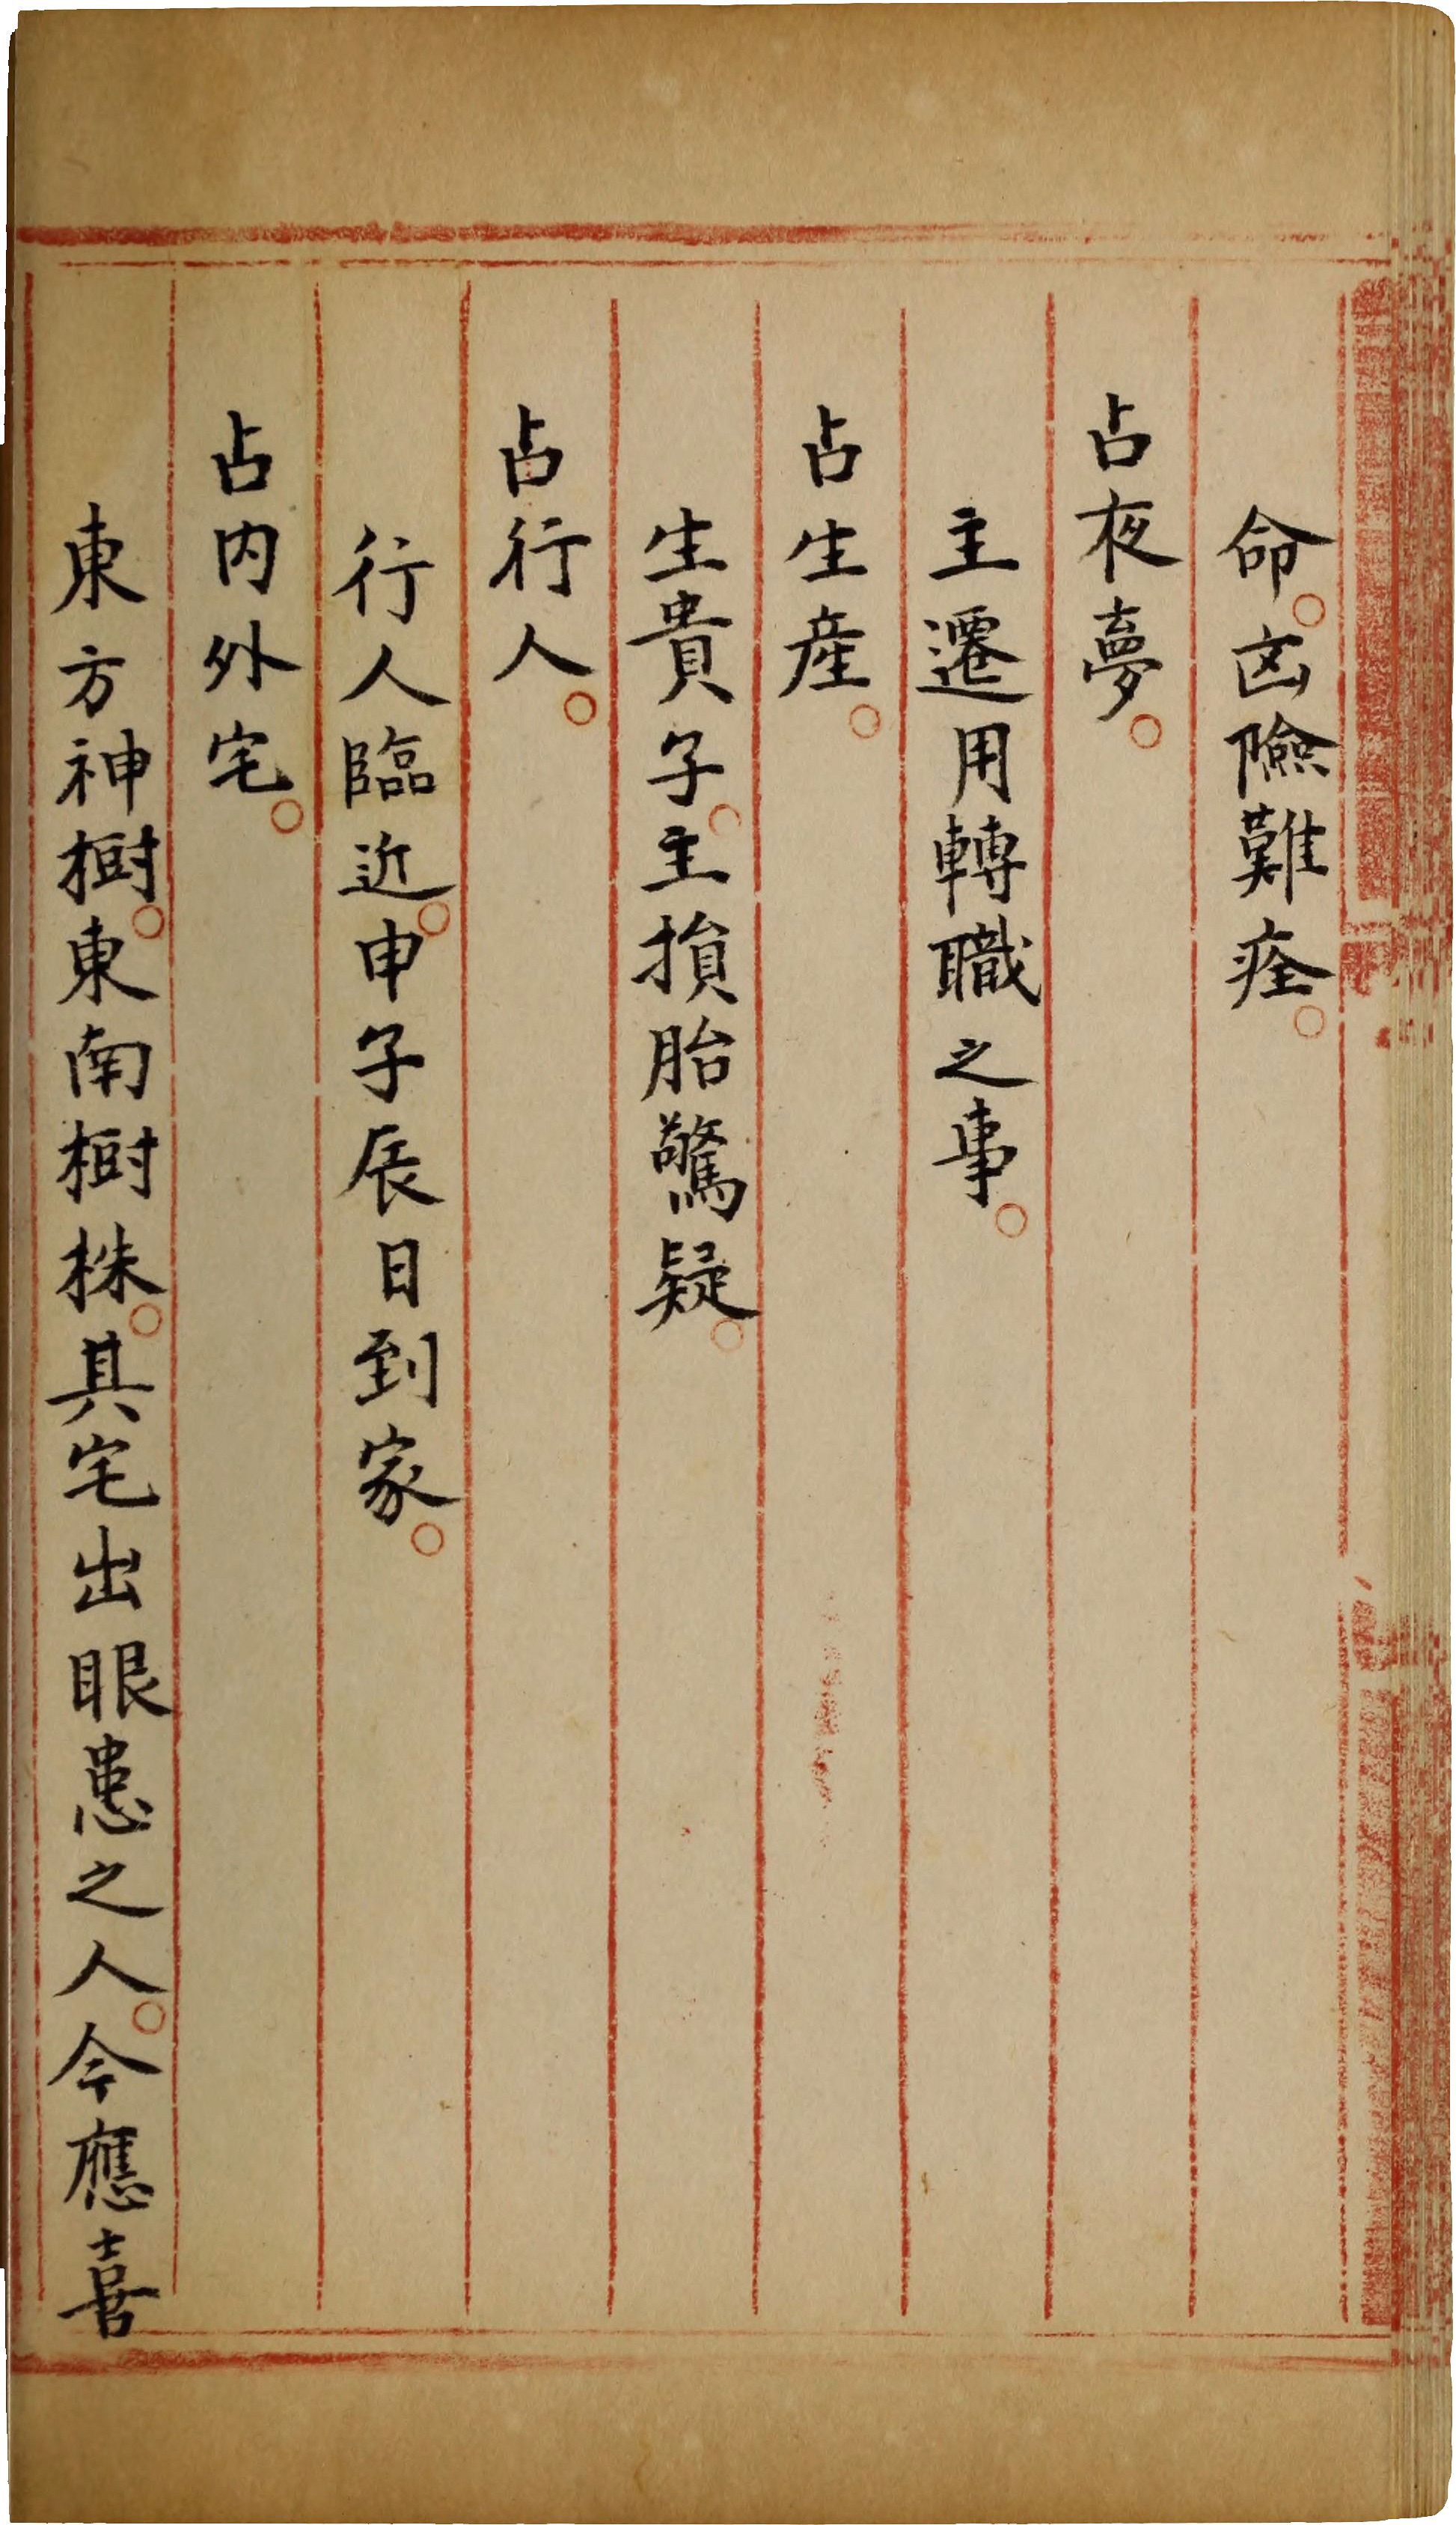 命。凶險難痊。
占夜夢。
主遷用轉職之事。
占生産。
生貴子。主損胎驚疑。
占行人。
行人臨近。申子辰日到家。
占内外宅。
東方神樹。東南樹株。其宅出眼患之人。今應喜